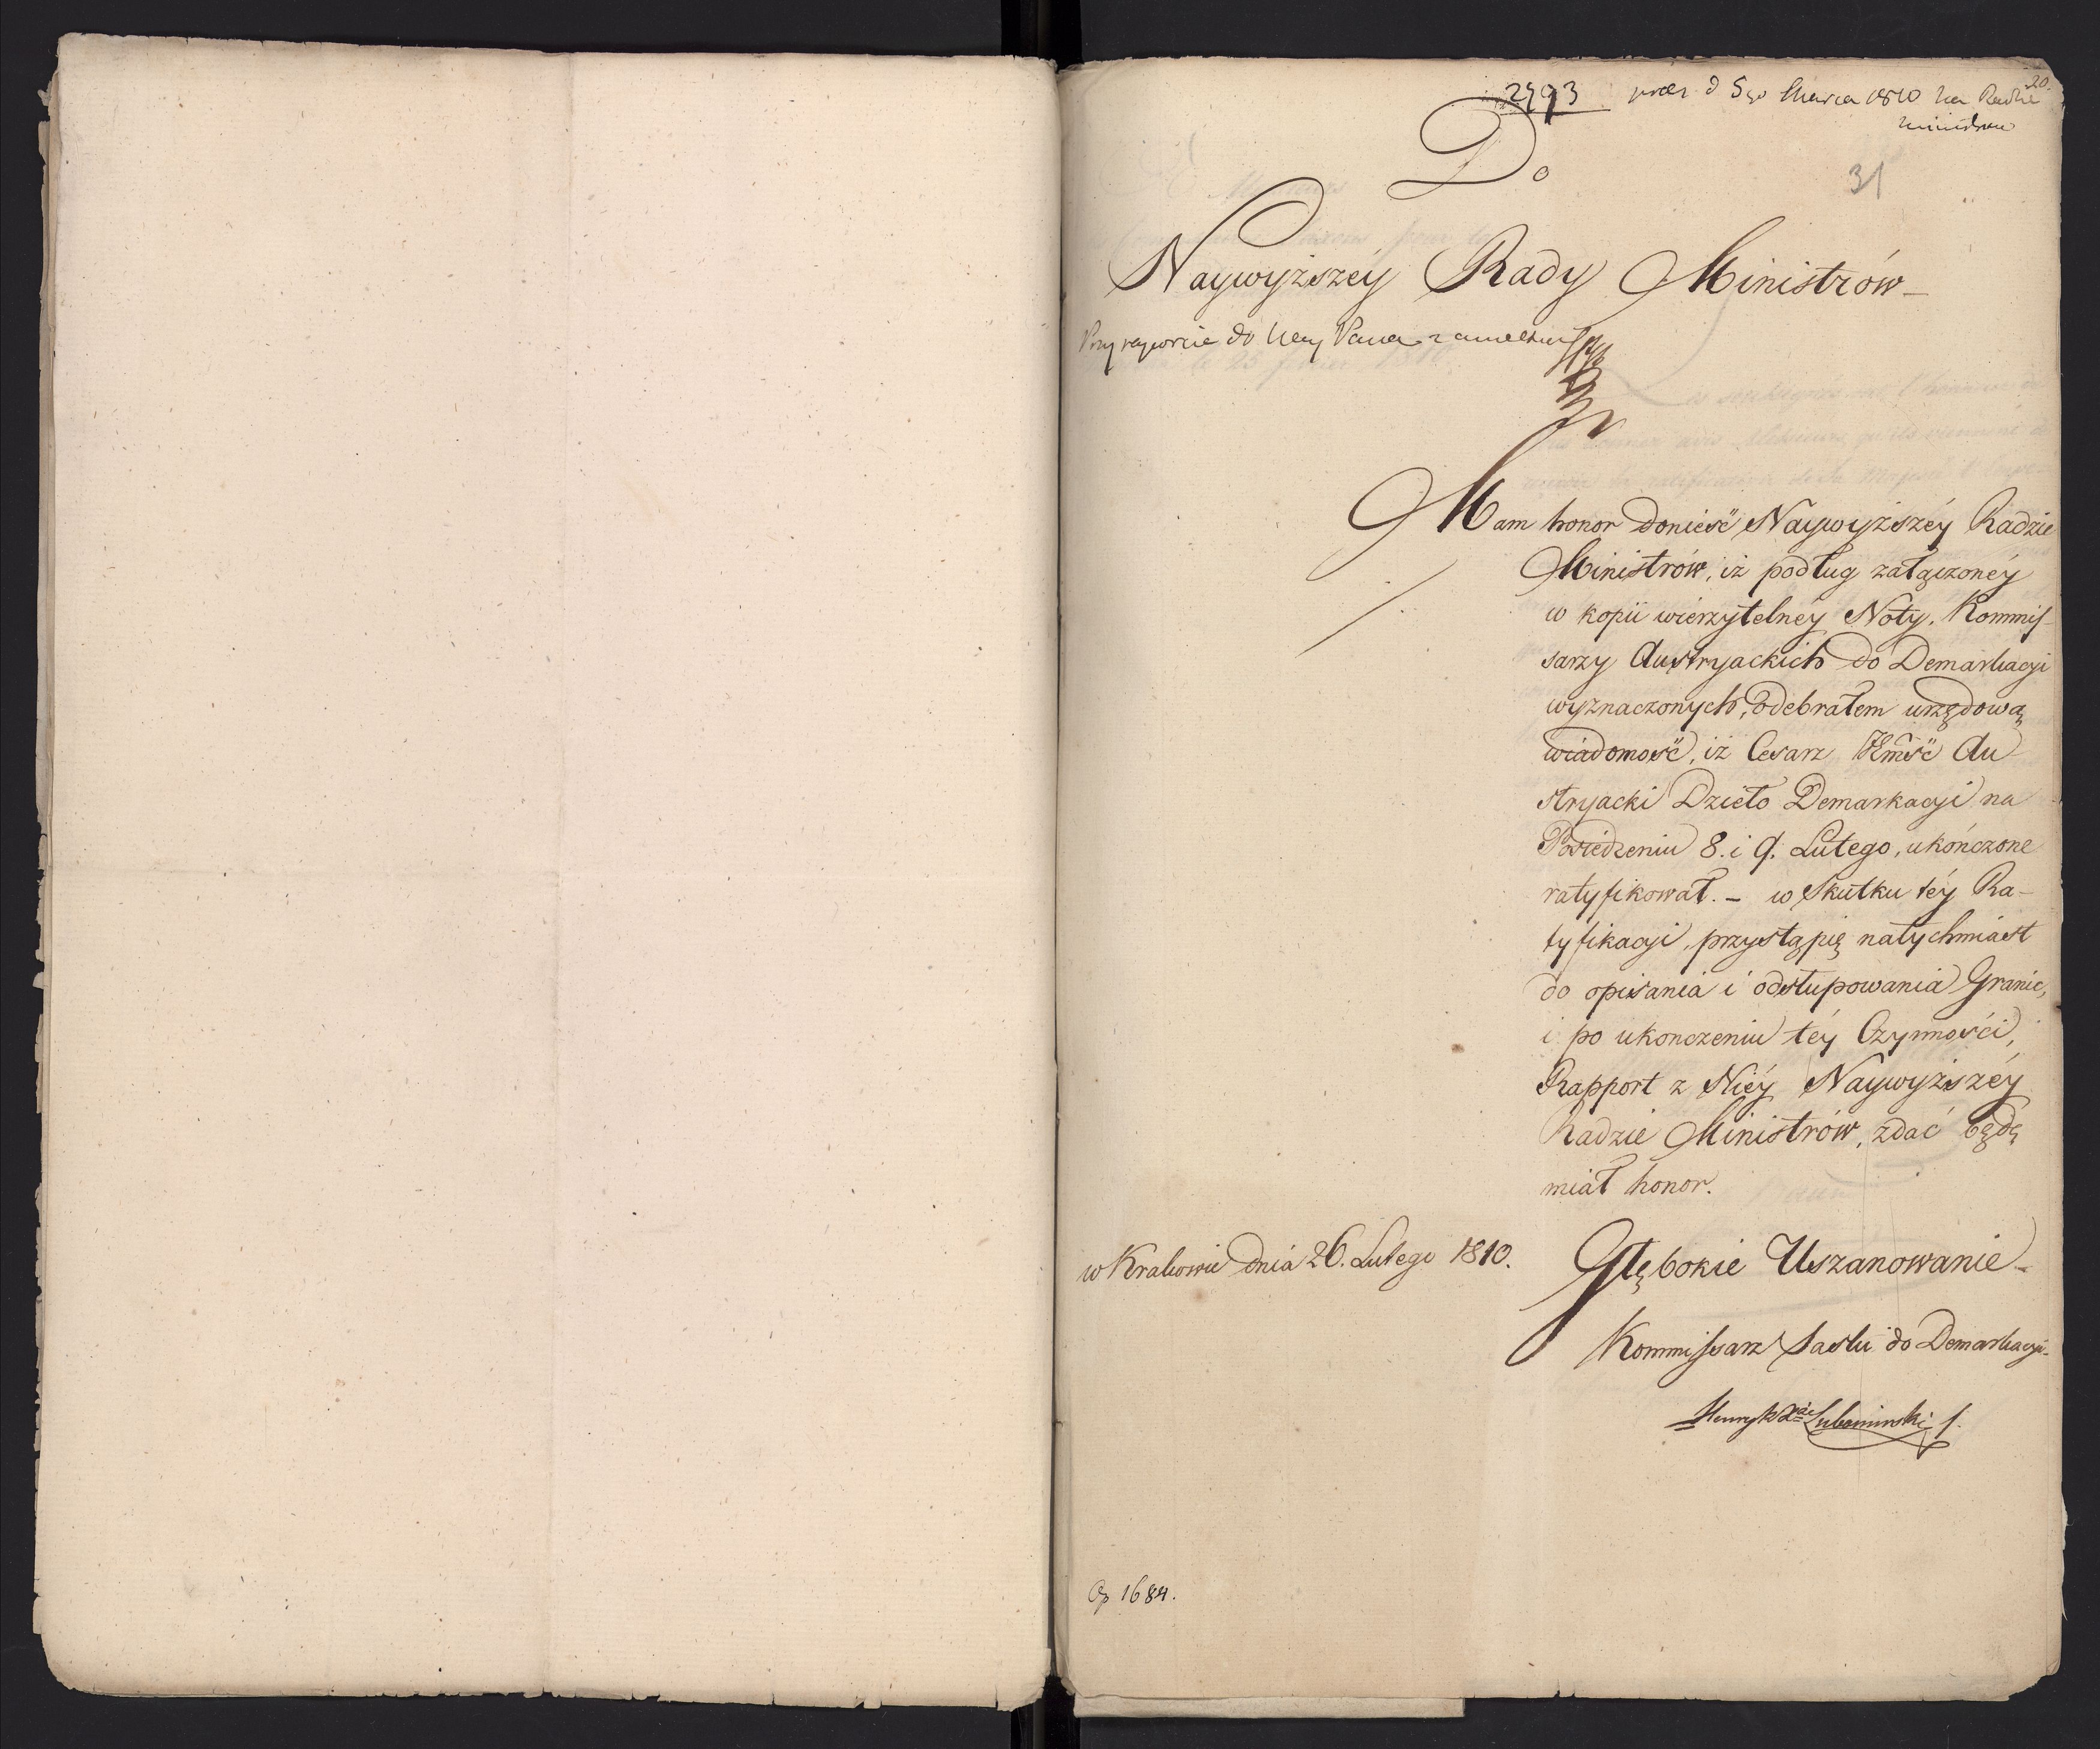 2793 prez d 5go Marca 1810 na Radzie
20.
Ministrow
Do
31
Naywyższéy Rady Ministrów
Przy raporcie do Nay Pana
Mam honor donieść Naywyższéy Radzie
Ministrów, iż podług załączonéy
w kopii wierzytelnéy Noty, Kommis-
sarzy Austryackich do Demarkacyi
wyznaczonych, odebrałem urzędową
wiadomość, iż Cesarz Jmść Au-
stryacki Dzieło Demarkacyi na
Posiedzeniu 8. i 9. Lutego, ukończone
ratyfikował. – w Skutku téy Ra-
tyfikacyi, przystąpię natychmiast
do opisania i odstupowania Granic,
i po ukonczeniu téy Czynności,
Rapport z Niéy Naywyższéy
Radzie Ministrów, zdać będę
miał honor.
w Krakowie dnia 26. Lutego 1810.
Głębokie Uszanowanie
Kommissarz Saski do Demarkacyi
Henryk Xże Lubomirski
Op 1684.